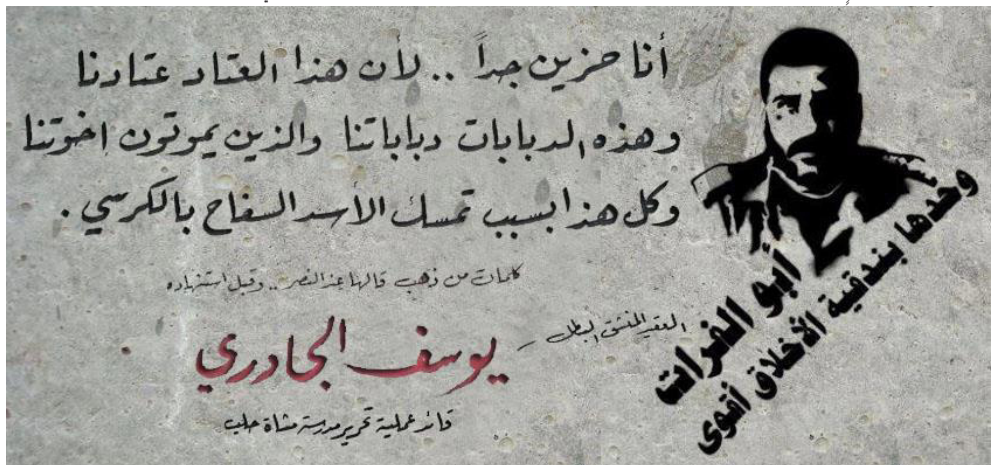 أنا حزين جداً .. لأن هذا العتاد عتادنا
وهذه الدبابات دباباتنا والذين يموتون اخوتنا
وكل هذا بسبب تمسك الأسد السفاح بالكرسي .
كلمات من ذهب قالها عند النصر .. وقبل استشهاده
العقيد المنشق البطل
يوسف الجادري
قائد عملية تحرير مدرسة مشاة حلب
أبو الفرات
وحدها بندقية الأخلاق أقوى